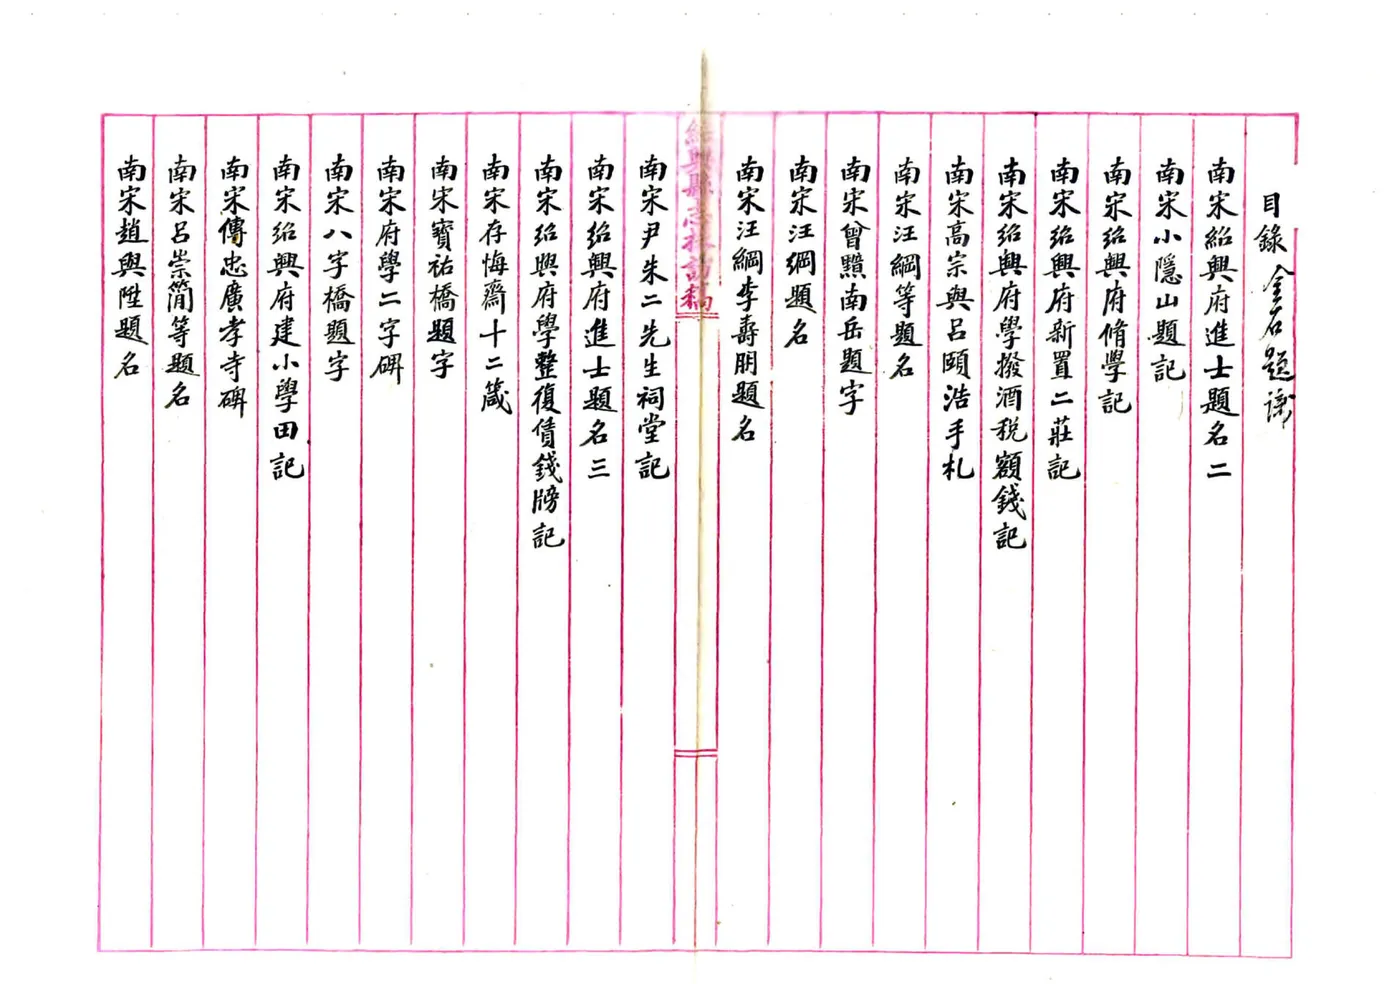 目錄 金石題識
南宋紹興府進士題名二
南宋小隱山題記
南宋紹興府脩學記
南宋紹興府新置二莊記
南宋紹興府學撥酒税額錢記
南宋高宗與呂頤浩手札
南宋汪綱等題名
南宋曾黯南岳題字
南宋汪綱題名
南宋汪綱李壽朋題名
紹興縣志採訪稿
南宋尹朱二先生祠堂記
南宋紹興府進士題名三
南宋紹興府學整復債錢牓記
南宋存悔齋十二箴
南宋寶祐橋題字
南宋府學二字碑
南宋八字橋題字
南宋紹興府建小學田記
南宋傳忠廣孝寺碑
南宋呂崇簡等題名
南宋趙與陞題名